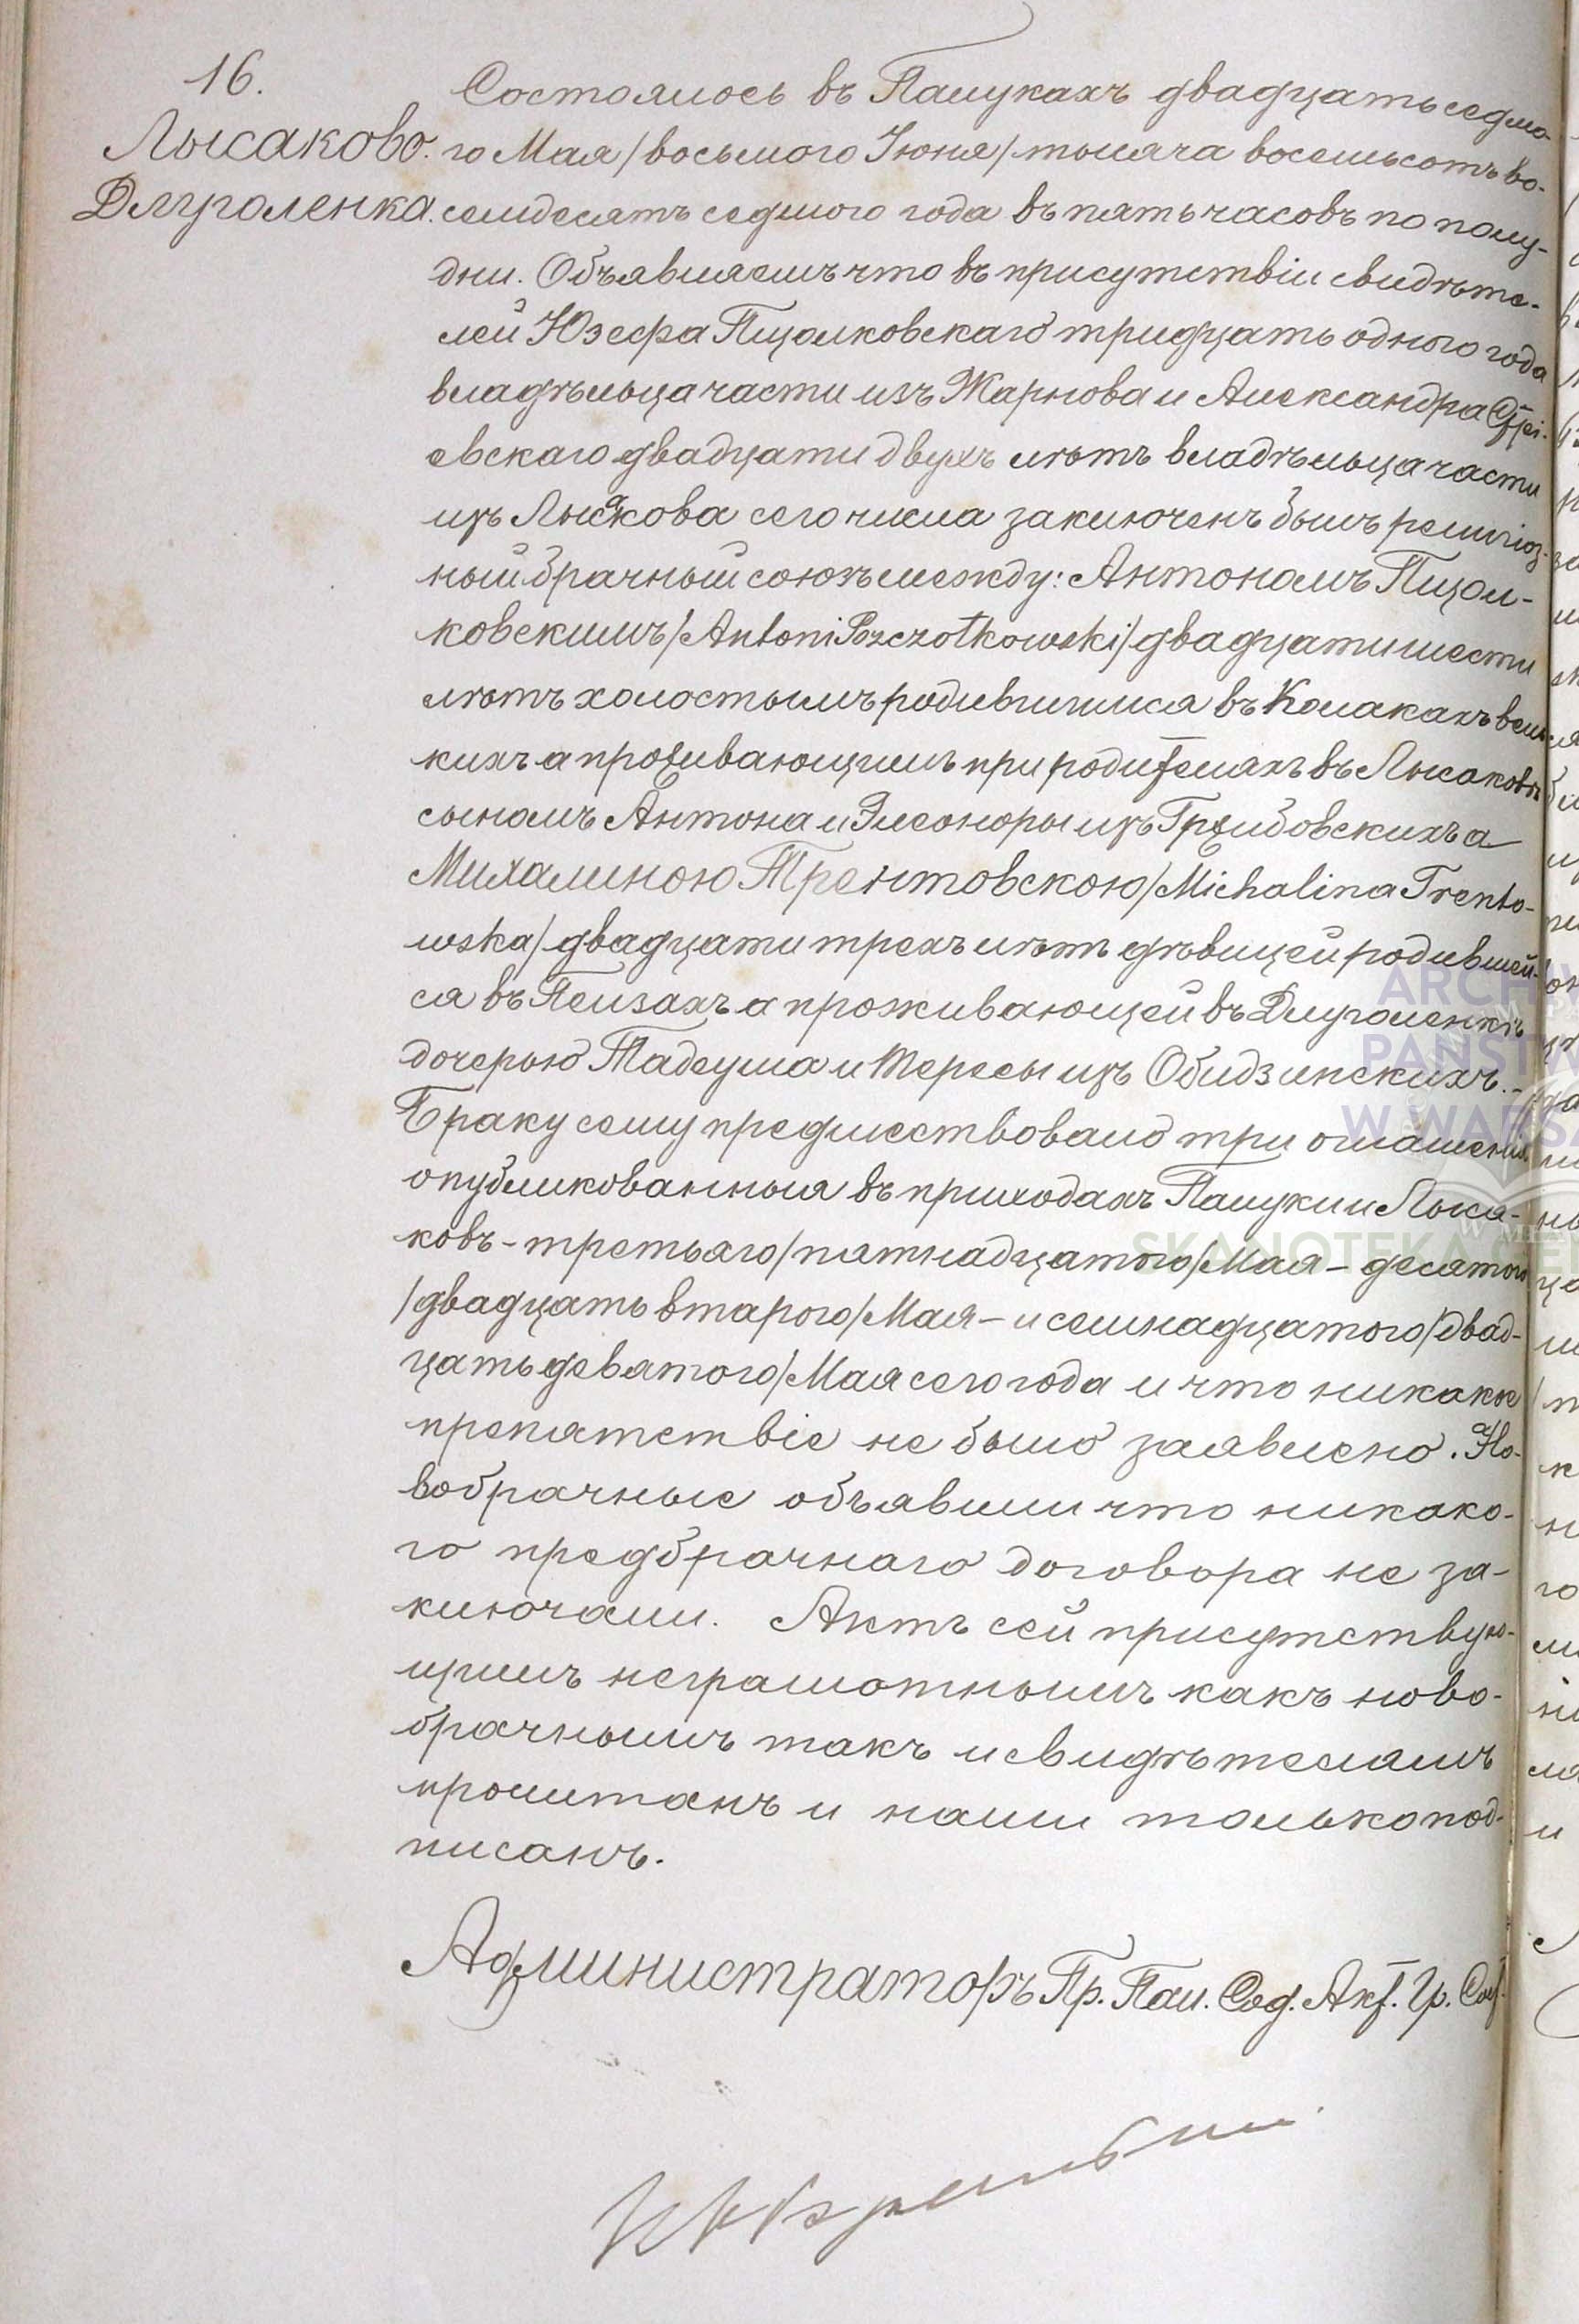 16.
Лысаково.
Длуголенка.
Состоялось въ Палукахъ двадцать седмо-
го Мая /восьмого Іюня/ тысяча восемьсотъ во-
семдесятъ седмого года въ пять часовъ по полу-
дни. Объявляемъ что въ присутствіи свидѣте-
лей Юзефа Пщолковскаго тридцать одного года
владѣльца части изъ Жарнова и Александра
евскаго двадцати двухъ лѣтъ владѣльца части
изъ Лысакова сего числа заключенъ былъ религіоз-
ный брачный союзъ между: Антономъ Пщол-
ковскимъ /Antoni Pszczółkowski/ двадцати шести
лѣтъ холостымъ родившимся въ Колакахъ вели-
кихъ а проживающимъ при родителяхъ въ Лысаковѣ
сыномъ Антона и Элеоноры изъ Гржибовскихъ а
Михалиною Трентовскою /Michalina Trento-
wska/ двадцати трехъ лѣтъ дѣвицей родившей-
ся въ Пелзахъ а проживающей въ Длуголенкѣ
дочерью Тадеуша и Тересы изъ Обидзинскихъ.-
Браку сему предшествовало три оглашенія
опубликованныя въ приходахъ Палуки и Лыса-
ковъ - третьяго /пятнадцатого/ Мая - десятого
/двадцать второго/ Мая - и семнадцатого /двад-
цать девятого/ Мая сего года и что никакое
препятствіе не было заявлено. Но-
вобрачные объявили что никако-
го предбрачнаго договора не за-
ключали. Актъ сей присутствую-
щимъ неграмотнымъ какъ ново-
брачнымъ такъ и свидѣтелямъ
прочитанъ и нами только под-
писанъ.
Администраторъ Пр. Пал. Сод. Акт. Гр. Сос.
ARCHIW
PAŃSTW
W WARSZA
SKANOTEKA GEN